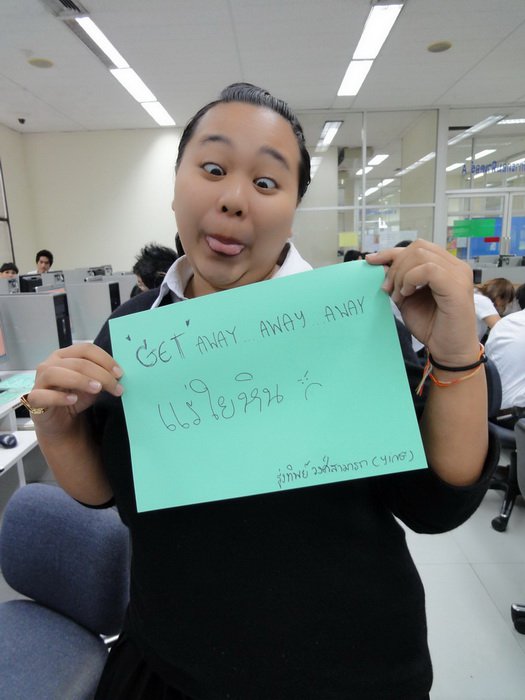 "GET" AWAY... AWAY... AWAY
แร่ใยหิน
รุ่งทิพย์ วงศ์สามารถ (YING)